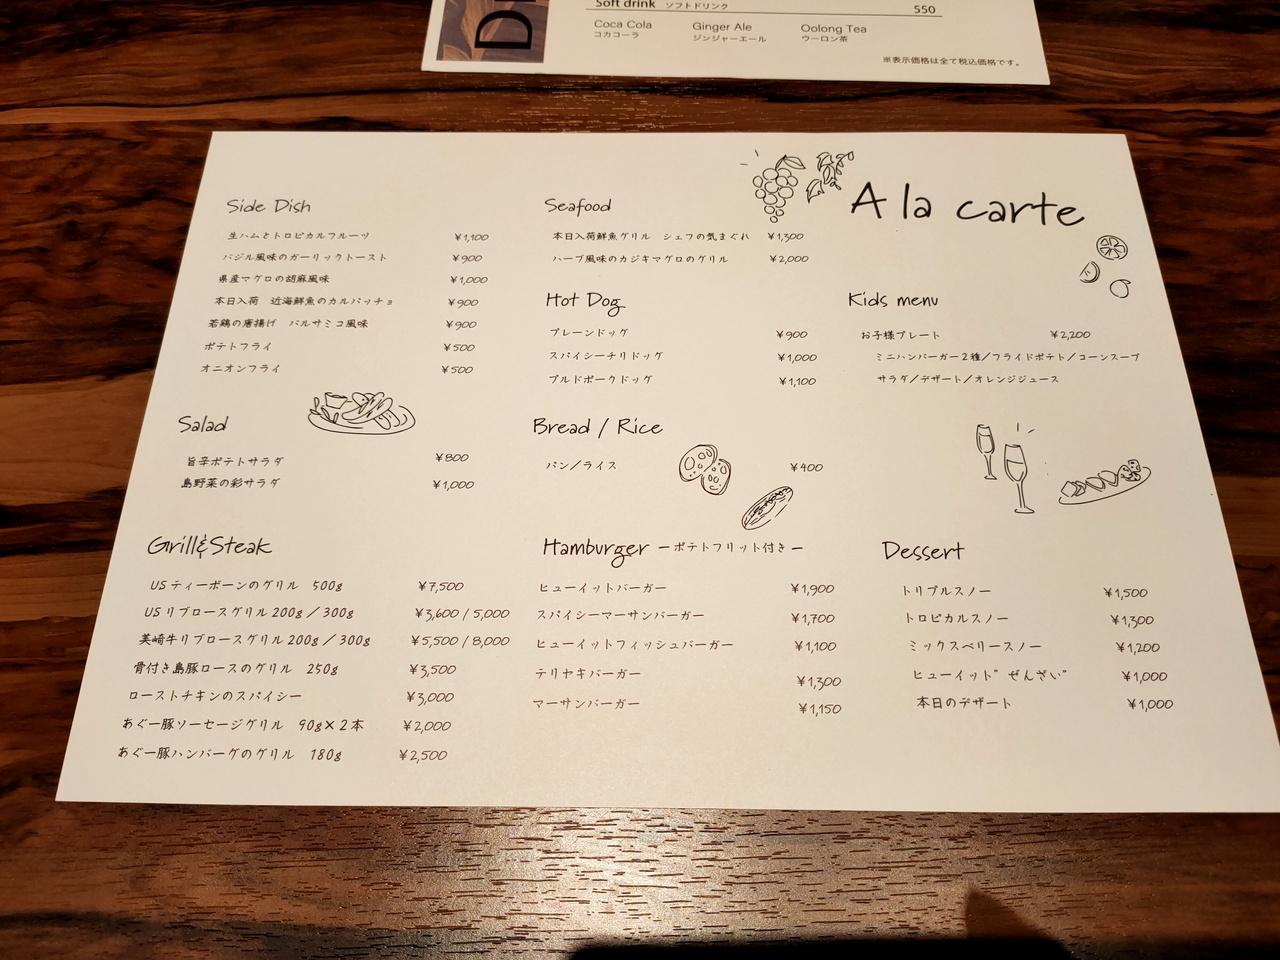 DR
Soft drink ソフトドリンク 550
Coca Cola Ginger Ale Oolong Tea
コカコーラ ジンジャーエール ウーロン茶
※表示価格は全て税込価格です。
A la carte
Side Dish
生ハムとトロピカルフルーツ ¥1,100
バジル風味のガーリックトースト ¥900
県産マグロの胡麻風味 ¥1,000
本日入荷 近海鮮魚のカルパッチョ ¥900
若鶏の唐揚げ バルサミコ風味 ¥900
ポテトフライ ¥500
オニオンフライ ¥500
Salad
旨辛ポテトサラダ ¥800
島野菜の彩サラダ ¥1,000
Grill&Steak
US ティーボーンのグリル 500g ¥7,500
US リブロースグリル 200g／300g ¥3,600 / 5,000
美崎牛リブロースグリル 200g／300g ¥5,500 / 8,000
骨付き島豚ロースのグリル 250g ¥3,500
ローストチキンのスパイシー ¥3,000
あぐー豚ソーセージグリル 90g×2本 ¥2,000
あぐー豚ハンバーグのグリル 180g ¥2,500
Seafood
本日入荷鮮魚グリル シェフの気まぐれ ¥1,300
ハーブ風味のカジキマグロのグリル ¥2,000
Hot Dog
プレーンドッグ ¥900
スパイシーチリドッグ ¥1,000
プルドポークドッグ ¥1,100
Bread / Rice
パン／ライス ¥400
Hamburger ーポテトフリット付きー
ヒューイットバーガー ¥1,900
スパイシーマーサンバーガー ¥1,700
ヒューイットフィッシュバーガー ¥1,100
テリヤキバーガー ¥1,300
マーサンバーガー ¥1,150
Kids menu
お子様プレート ¥2,200
ミニハンバーガー2種／フライドポテト／コーンスープ
サラダ／デザート／オレンジジュース
Dessert
トリプルスノー ¥1,500
トロピカルスノー ¥1,300
ミックスベリースノー ¥1,200
ヒューイット" ぜんざい" ¥1,000
本日のデザート ¥1,000